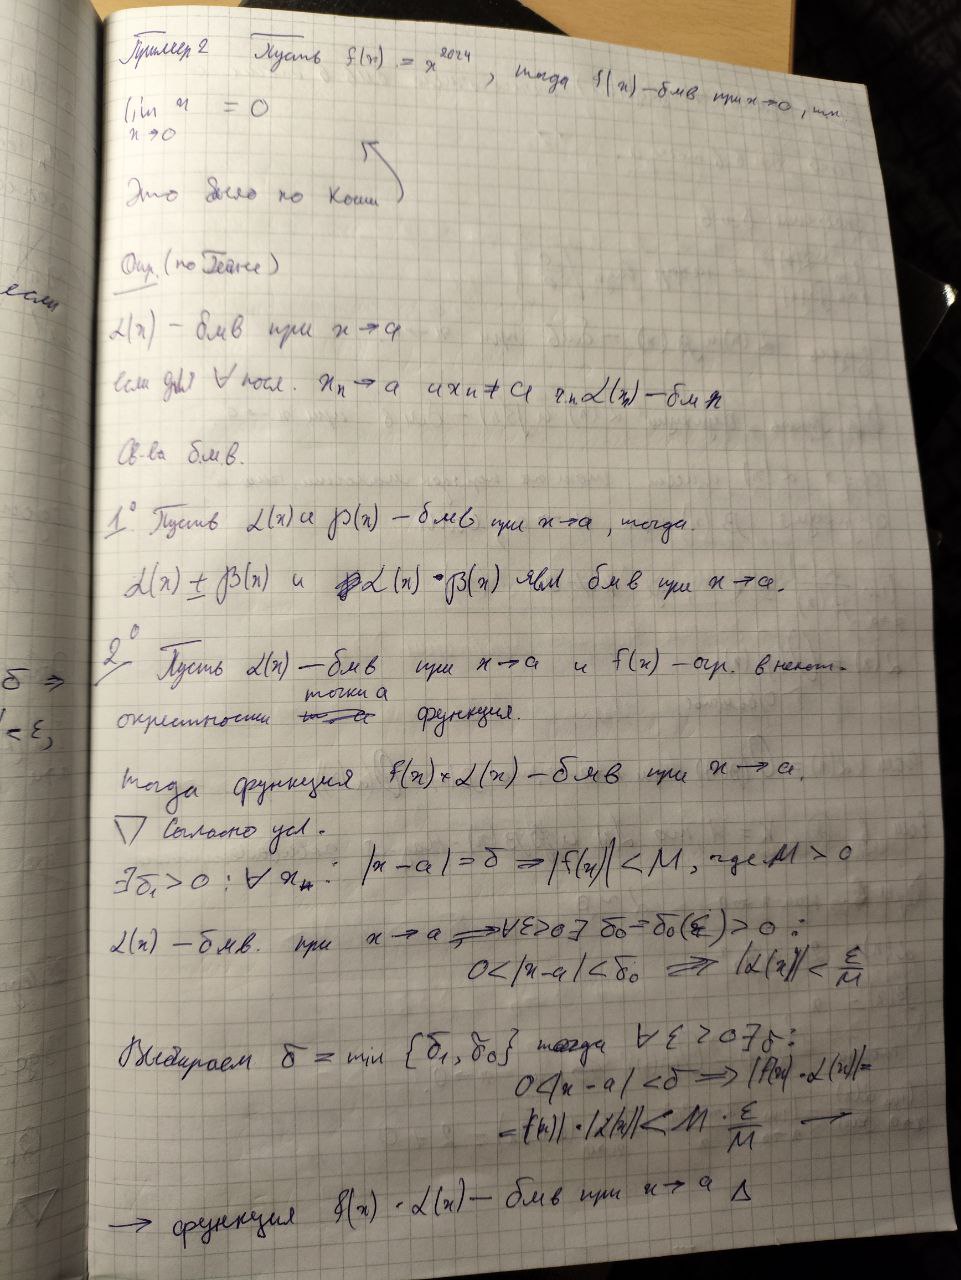 Пример 2 Пусть f(x) = x^2024, тогда f(x) – бмв при x→0, т.к.
lim x = 0
x→0
Это было по Коши
Опр. (по Гейне)
α(x) – бмв при x→a
если для ∀ посл. xn→a и xn≠a α(xn) – бмп
Св-ва б.м.в.
1° Пусть α(x) и β(x) – бмв при x→a, тогда.
α(x) ± β(x) и α(x)·β(x) явл бмв при x→a.
2° Пусть α(x) – бмв при x→a и f(x) – огр. в некот.
точки a
окрестности функция.
тогда функция f(x)·α(x) – бмв при x→a.
▽ Согласно усл.
∃δ1>0 : ∀x : |x–a|=δ ⇒ |f(x)|<M, где M>0
α(x) – бмв. при x→a, ⇒ ∀ε>0 ∃ δ0=δ0(ε)>0 :
0<|x–a|<δ0 ⇒ |α(x)|< ε/M
Выбираем δ = min {δ1, δ0} тогда ∀ε>0 ∃δ:
0<|x–a|<δ ⇒ |f(x)·α(x)|=
=|f(x)|·|α(x)|< M · ε/M →
→ функция f(x)·α(x) – бмв при x→a Δ
если
δ ⇒
<ε,